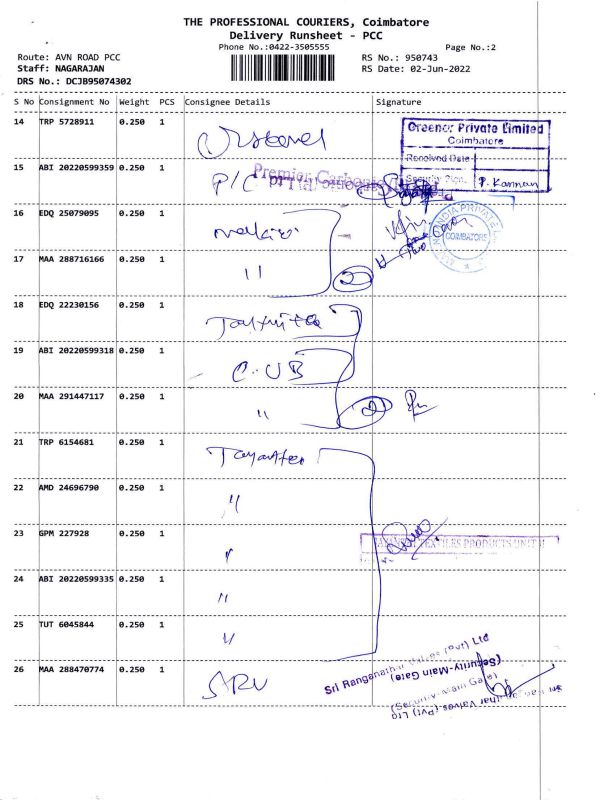 THE PROFESSIONAL COURIERS, Coimbatore
Delivery Runsheet - PCC
Phone No.:0422-3505555
Page No.:2
Route: AVN ROAD PCC
RS No.: 950743
Staff: NAGARAJAN
RS Date: 02-Jun-2022
DRS No.: DCJB95074302
S No Consignment No Weight PCS Consignee Details Signature
14 TRP 5728911 0.250 1
Greenor Private Limited
Coimbatore
Received Date
15 ABI 20220599359 0.250 1 P/C
P. Kannan
16 EDQ 25079095 0.250 1
COIMBATORE
17 MAA 288716166 0.250 1 " 2
18 EDQ 22230156 0.250 1
19 ABI 20220599318 0.250 1 C.UB
20 MAA 291447117 0.250 1 " 2
21 TRP 6154681 0.250 1
22 AMD 24696790 0.250 1 "
23 GPM 227928 0.250 1 "
TEXTILES PRODUCTS UNIT II
24 ABI 20220599335 0.250 1 "
25 TUT 6045844 0.250 1 "
26 MAA 288470774 0.250 1 SRV
Sri Ranganathar Valves (Pvt) Ltd
(Security-Main Gate)
(Security-Main Gate)
Sri Ranganathar Valves (Pvt) Ltd